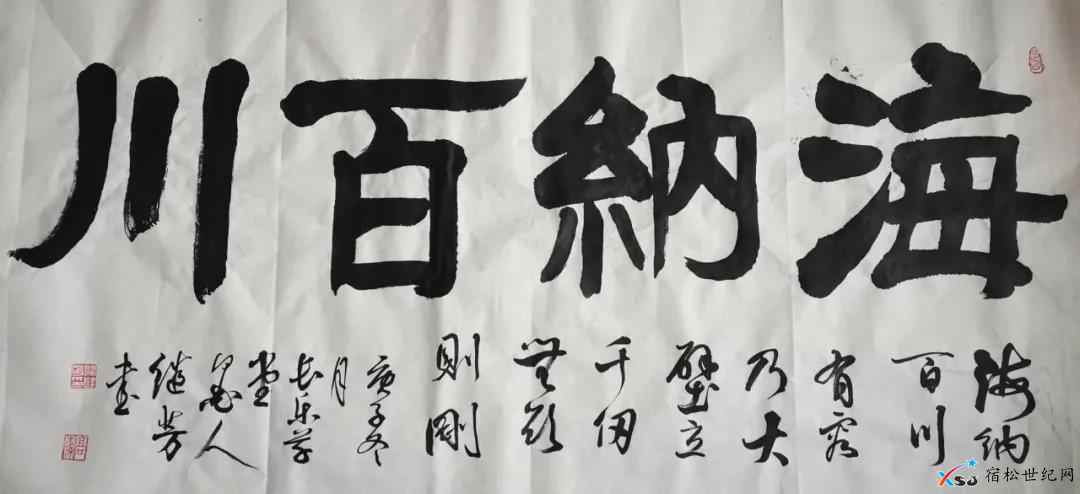 海納百川
海纳
百川
有容
乃大
壁立
千仞
無欲
則剛
庚子冬
月
长乐
堂
人
继芳
书
XSJ 宿松世纪网